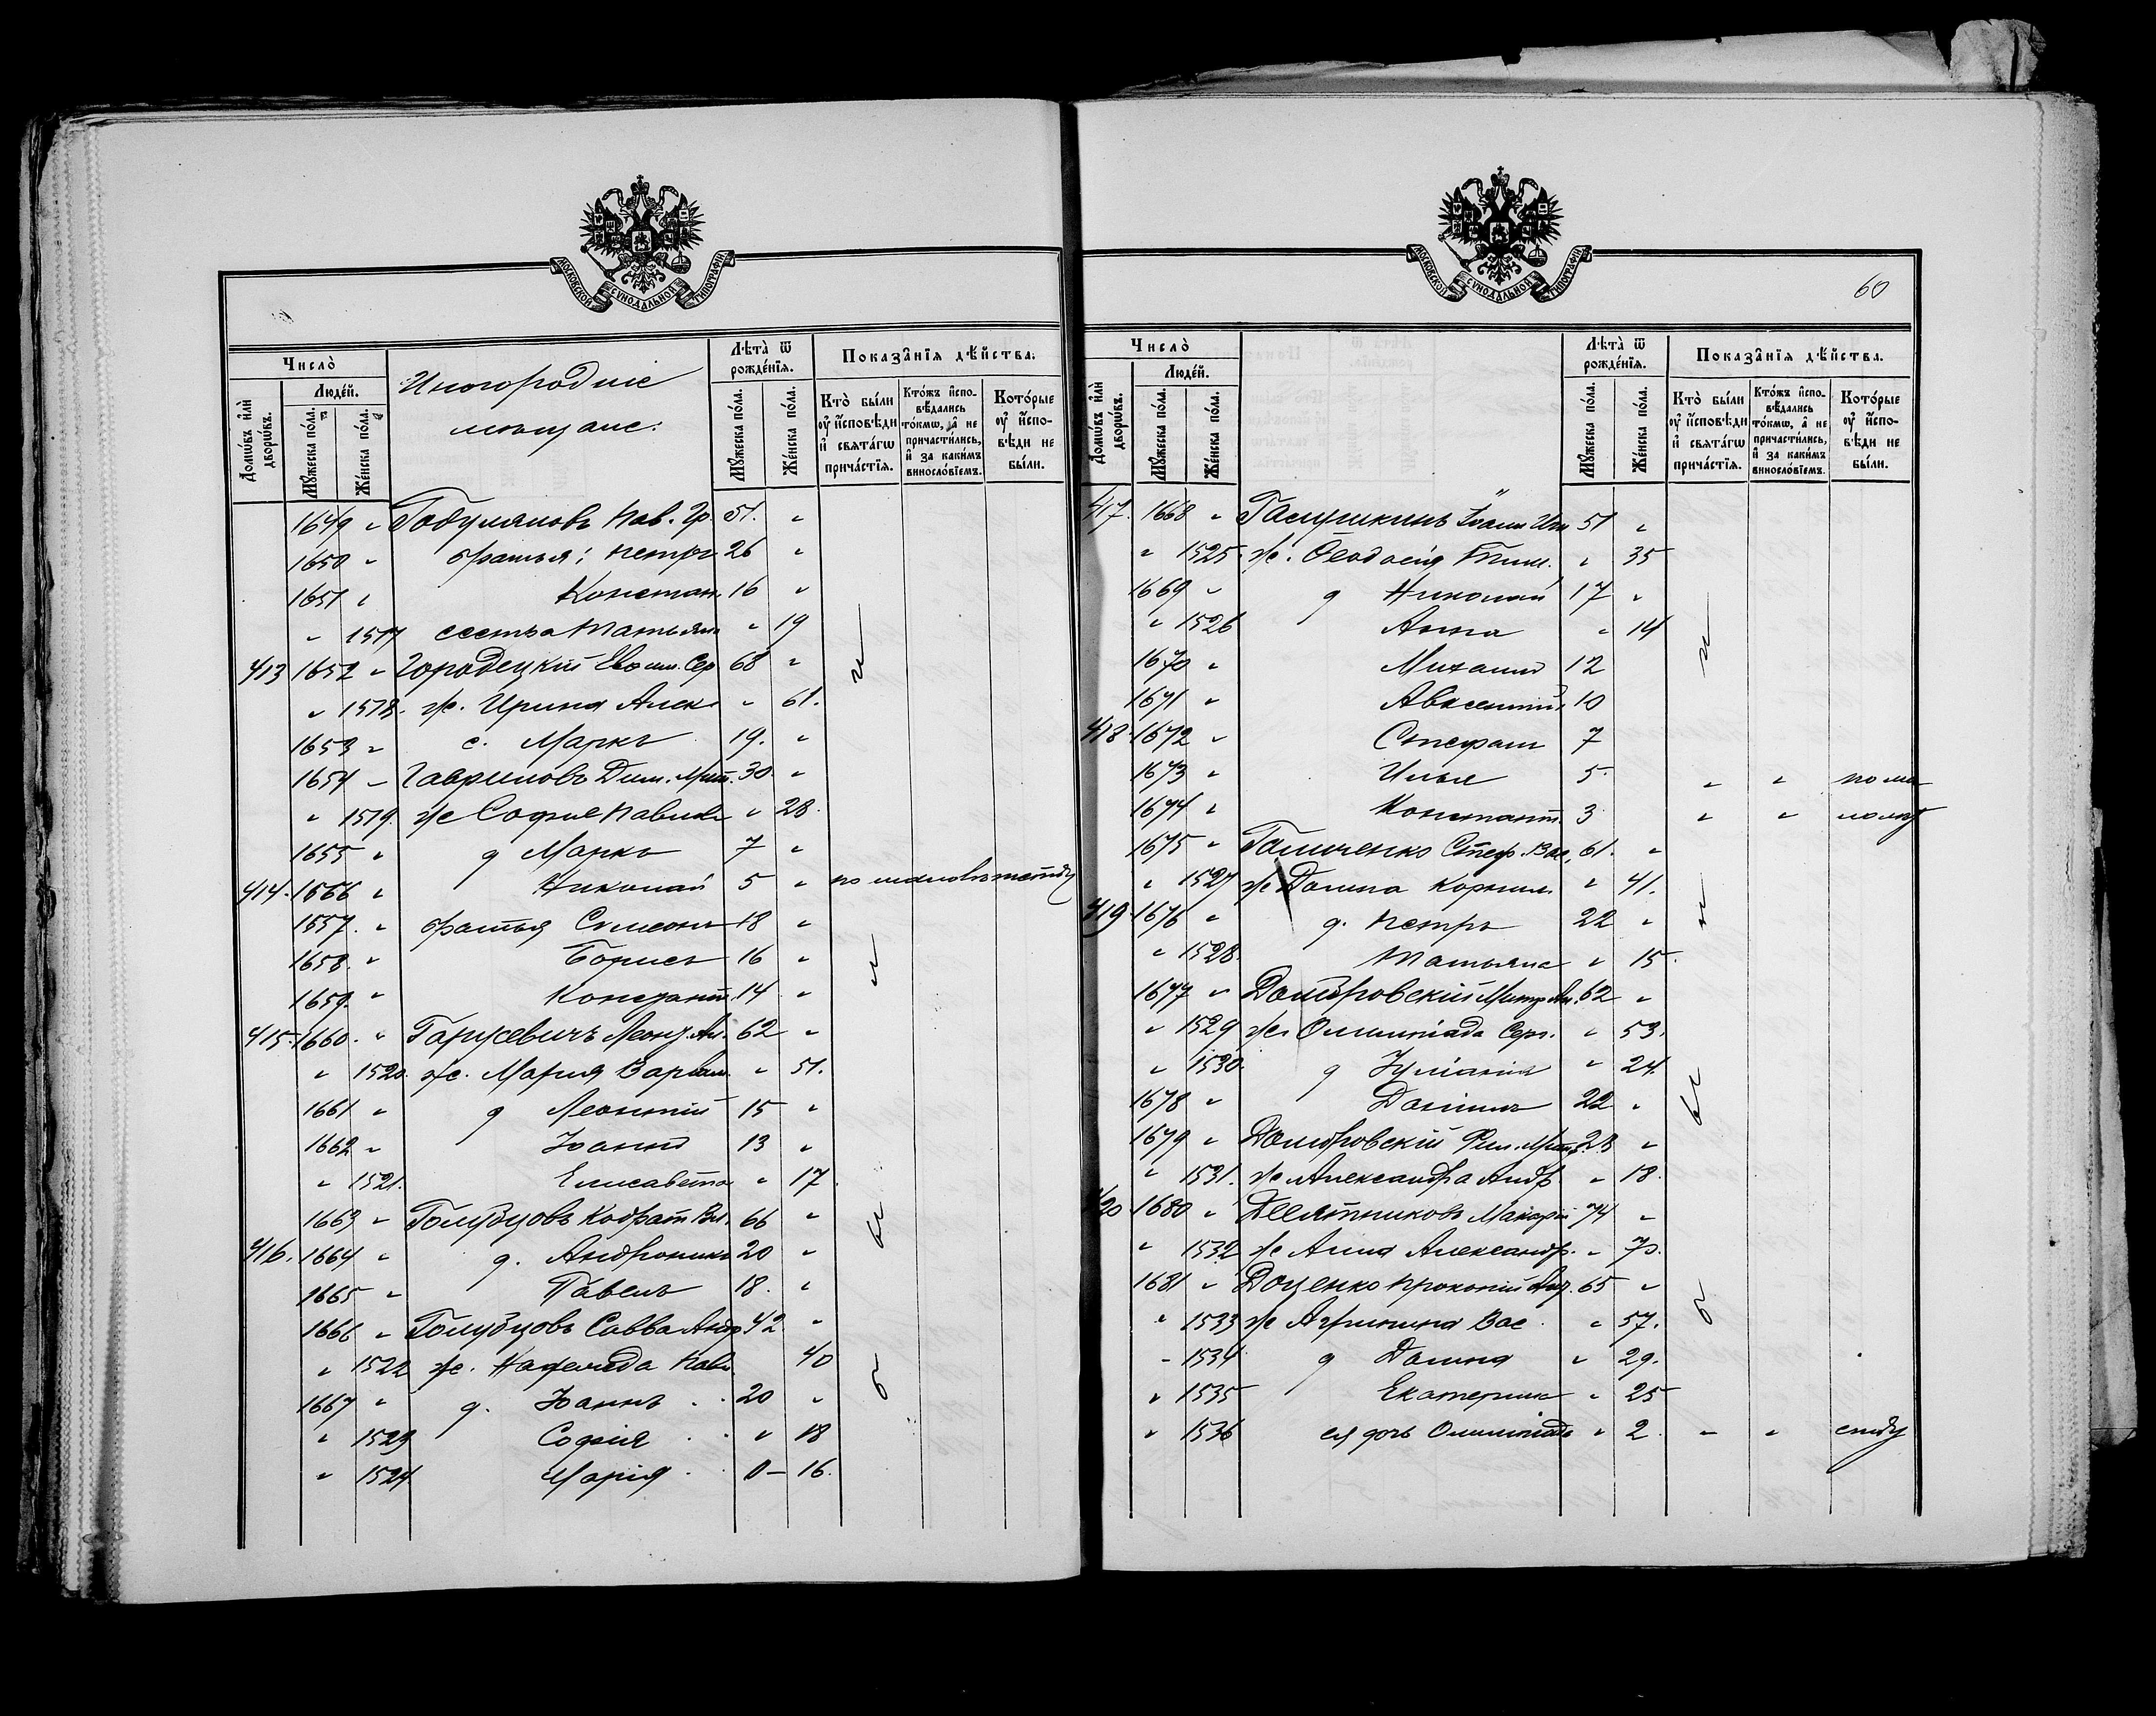 МОСКОВСКОЙ СѴНОДАЛЬНОЙ ТИПОГРАФІИ
Число̀
Люде́й.
Домѡ́въ и҆лѝ дворѡ́въ.
Мꙋ́жеска по́ла.
Же́нска по́ла.
Иногородніе
мѣщане:
Лѣта̀ ѿ рожде́нїѧ.
Мꙋ́жеска по́ла.
Же́нска по́ла.
Показа̑нїѧ дѣ́йства:
Кто̀ бы́ли оу҆ и҆сповѣ́ди и҆ свѧта́гѡ прича́стїѧ.
Кто́жъ и҆сповѣ́дались то́кмѡ, а҆ не причасти́лись, и҆ за каки́мъ винослόвїемъ.
Кото́рые оу҆ и҆сповѣ́ди не бы́ли.
1649 " Пав. Гр. 51. "
1650 " братья: Петръ 26 "
1651 " Констан. 16 "
" 1517 сестра Татьяна " 19
413 1652 " Городецкій Евфим. Сер 68 "
" 1518. ж. Ирина Алек. " 61.
1653 " с. Маркъ 19. "
1654 " Гавриловъ Дим. Мит. 30. "
" 1519. ж Софія Павлов " 28.
1655 " д Маркъ 7 "
414. 1656 " Николай 5 " по малолѣтству
1657. " братья Симеонъ 18 "
1658. " Борисъ 16 "
1659. " Констант. 14 "
415. 1660. " Гарусевичъ Леонт. Ал. 62 "
" 1520. ж. Марія Варѳал. " 51.
1661 " д Леонтій 15 "
1662 " Іоаннъ 13 "
" 1521. Елисавета " 17
1663 " Голубцовъ Кодрат 66 "
416. 1664 " д. Андроникъ 20 "
1665 " Павелъ 18. "
1666 " Голубцовъ Савва Андр 42 "
" 1522 ж. Надежда Павл. 40
1667 " д. Іоаннъ 20 "
" 1523 Софія " 18
" 1524 Марія 0 – 16.
МОСКОВСКОЙ СѴНОДАЛЬНОЙ ТИПОГРАФІИ
60
Число̀
Люде́й.
Домѡ́въ и҆лѝ дворѡ́въ.
Мꙋ́жеска по́ла.
Же́нска по́ла.
Лѣта̀ ѿ рожде́нїѧ.
Мꙋ́жеска по́ла.
Же́нска по́ла.
Показа̑нїѧ дѣ́йства.
Кто̀ бы́ли оу҆ и҆сповѣ́ди и҆ свѧта́гѡ прича́стїѧ.
Кто́жъ и҆сповѣ́дались то́кмѡ, а҆ не причасти́лись, и҆ за каки́мъ винослόвїемъ.
Кото́рые оу҆ и҆сповѣ́ди не бы́ли.
417. 1668 " Іоанн 51 "
" 1525. ж. Ѳеодосія Тим. " 35
1669 " д Николай 17 "
" 1526 Анна " 14
1670 " Михаилъ 12
1671 " Авксентій 10
418. 1672 " Стефанъ 7
1673 " Илья 5. " " по ма
1674 " Константин. 3 " " лолѣт
1675 " Галиченко Стеф. Вас. 61. "
" 1527 ж Домна Корнил. " 41.
419. 1676 " д. Петръ 22 "
" 1528. Татьяна " 15.
1677 " Домбровскій Митроф Ан. 62 "
" 1529 ж Олимпіада Серг. " 53.
" 1530. д Іуліанія " 24.
1678 " Даніилъ 22 "
1679 " Домбровскій Фил. Митр. 28 "
" 1531. ж Александра Андр. " 18.
420 1680 " Десятниковъ Макарій 74 "
" 1532 ж Анна Александр. " 70.
1681 " Доценко Прокопій Анд. 65 "
" 1533 ж Агрипина Вас. " 57.
" 1534 д Домна " 29.
" 1535 Екатерина " 25
" 1536 ея дочь Олимпіада " 2. " " ству